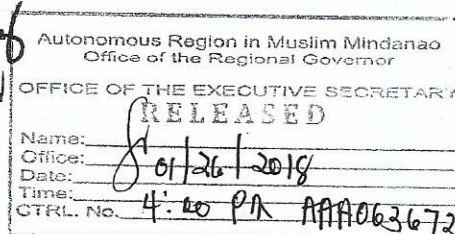 Autonomous Region in Muslim Mindanao
Office of the Regional Governor
OFFICE OF THE EXECUTIVE SECRETARY
RELEASED
Name:
Office:
Date: 01/26/2018
Time: 4:20 PM
CTRL. No. AAA063672